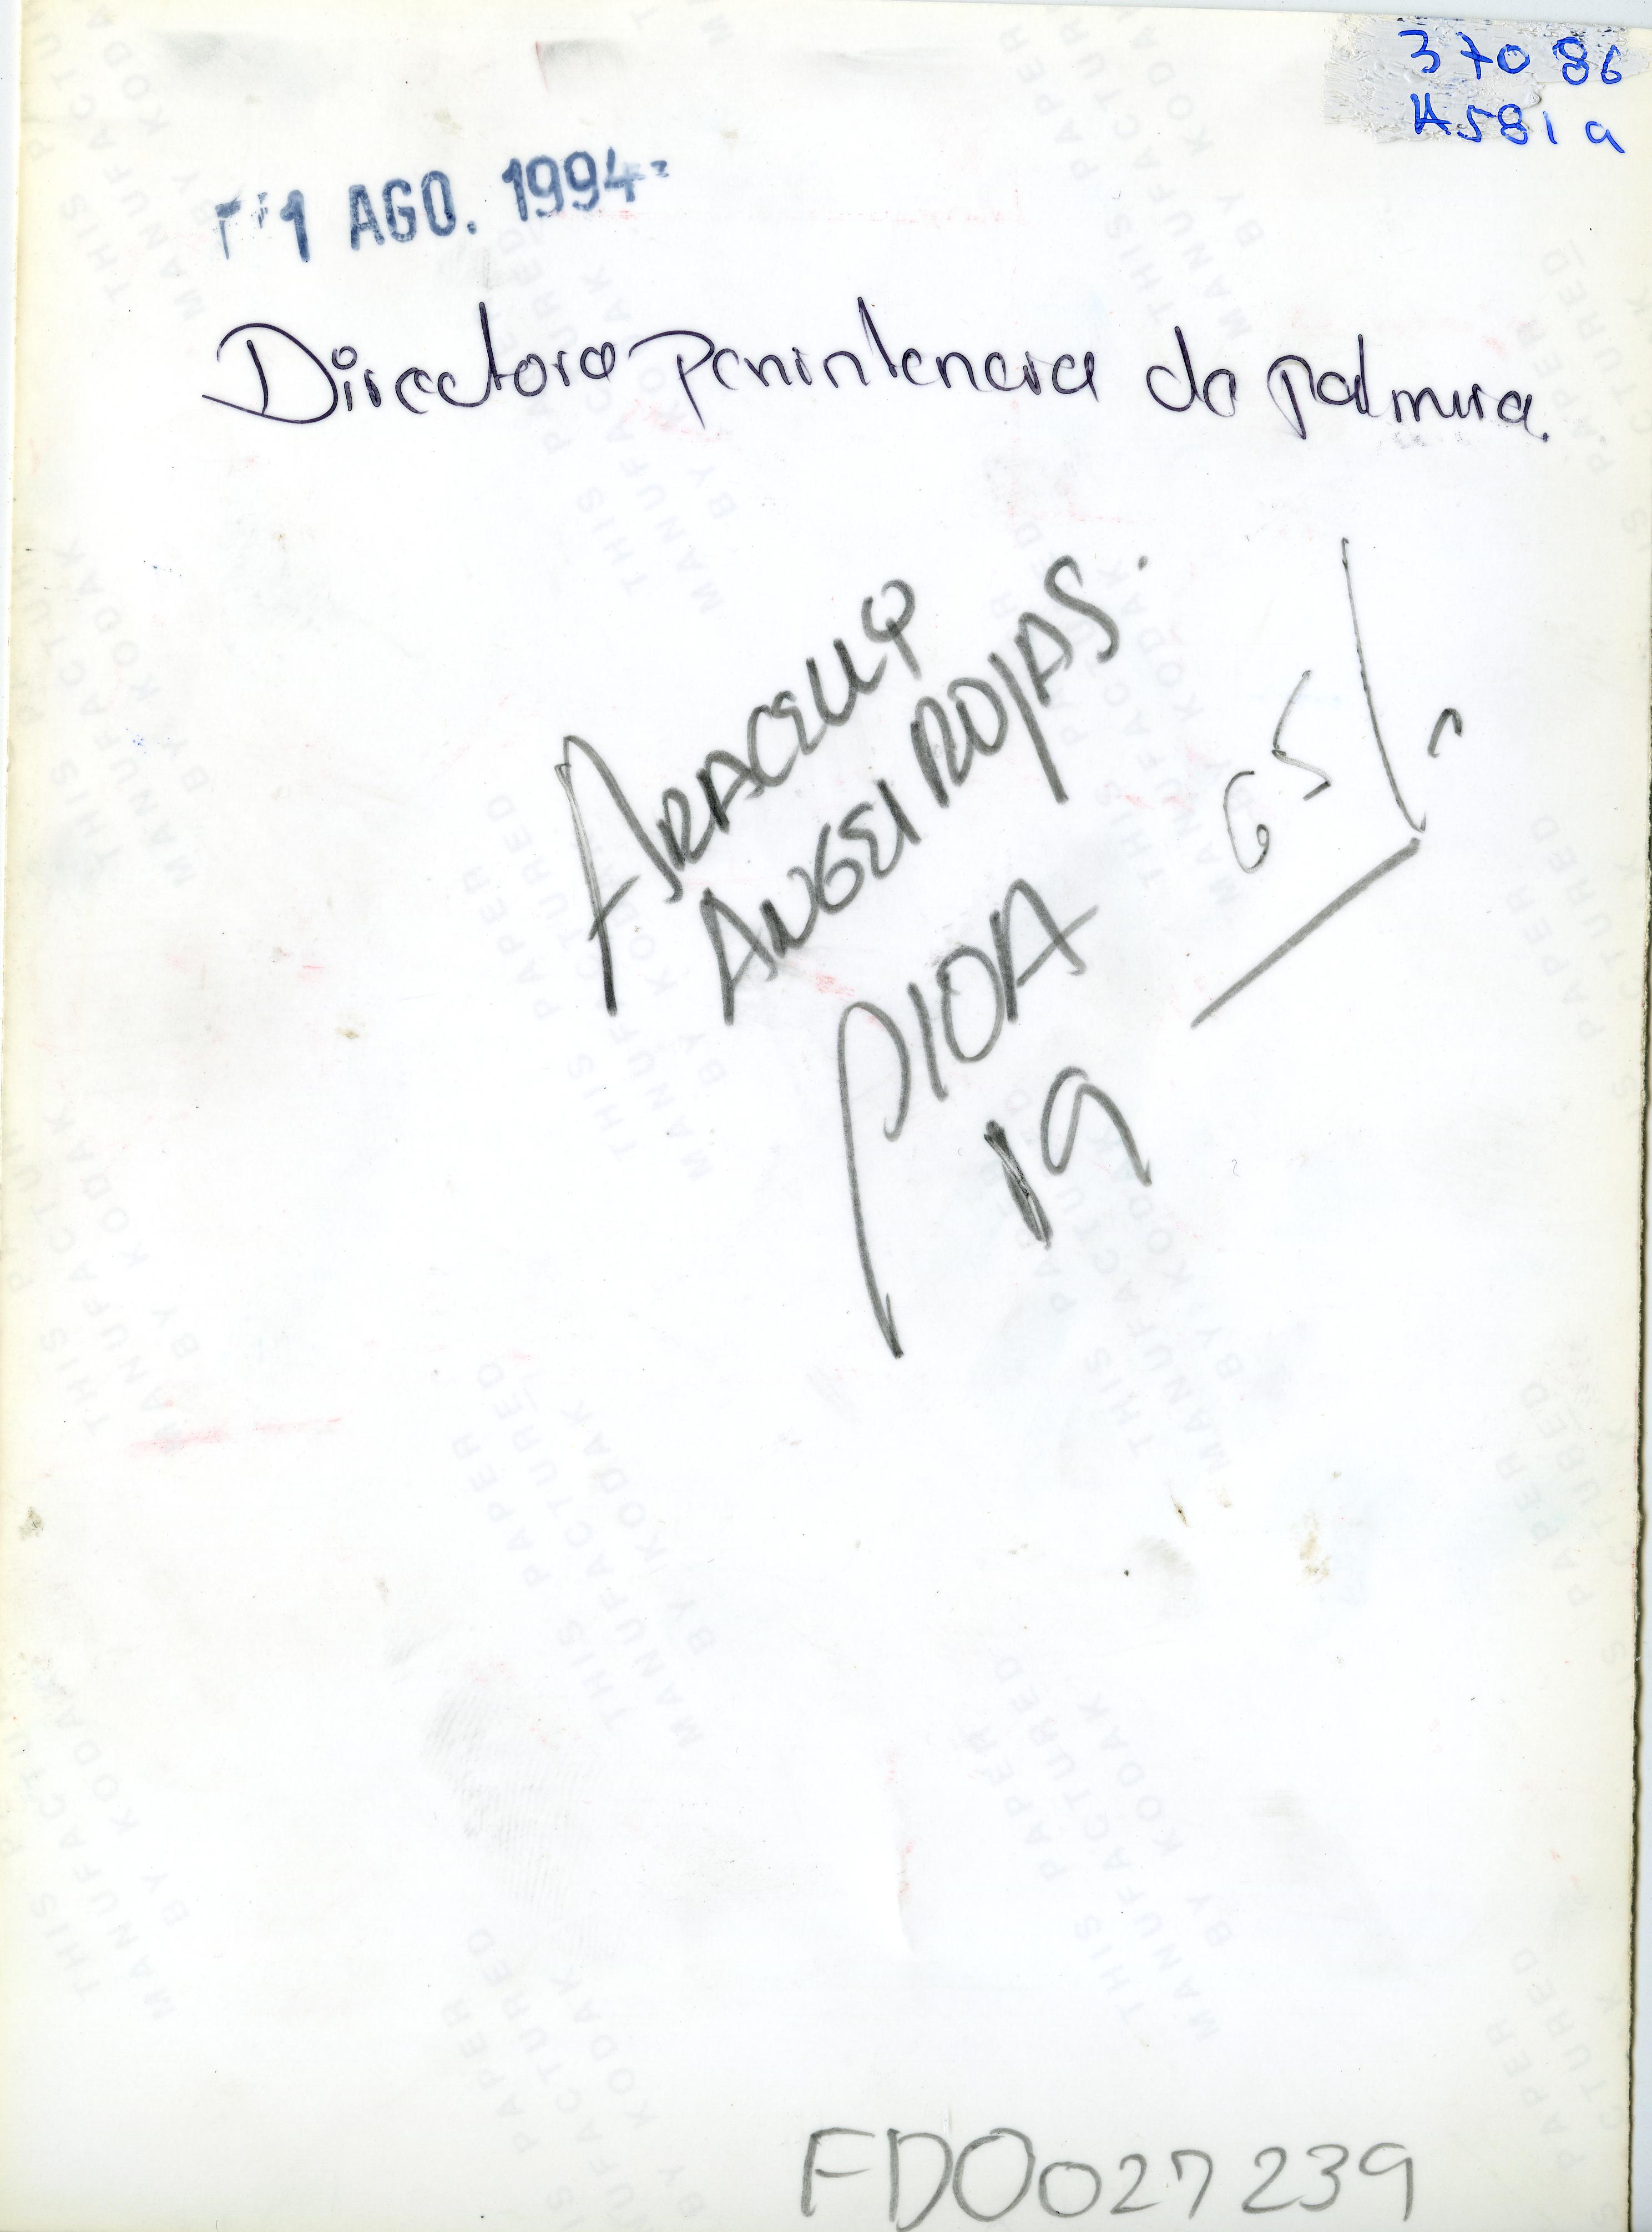 370 86
A581a
1 AGO. 1994
Directora penintencia de palmira.
ARACELLY
ANGEL ROJAS.
P10A
19
65/
FD0027239
THIS PAPER
MANUFACTURED
BY KODAK